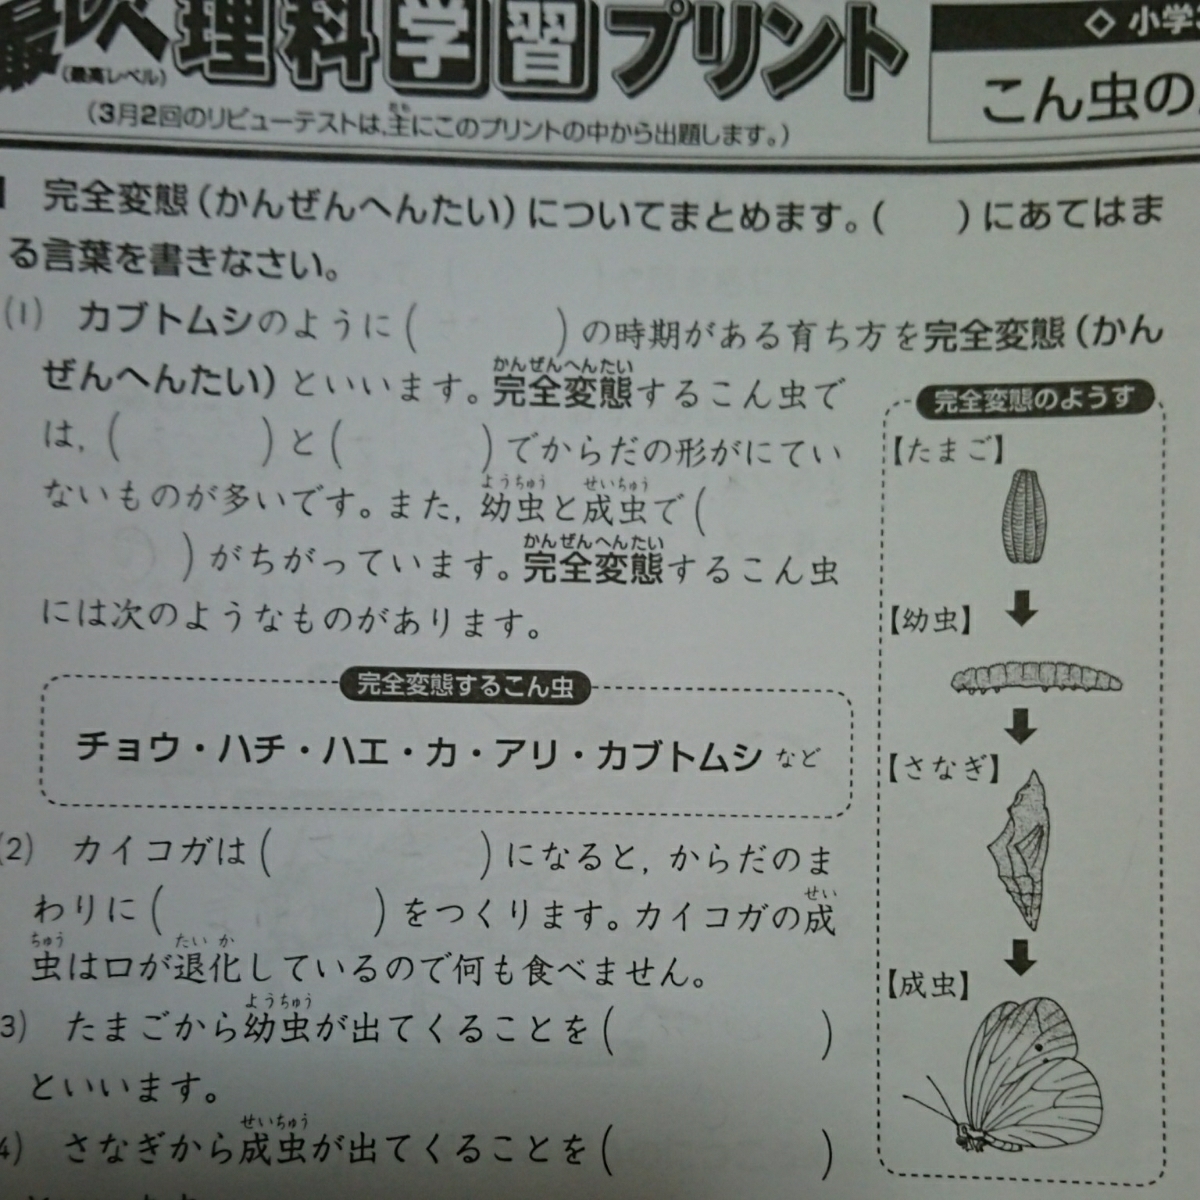 理科学習プリント
(最高レベル)
(3月2回のリビューテストは、主にこのプリントの中から出題します。)
◇ 小学
こん虫の
完全変態(かんぜんへんたい)についてまとめます。(　　)にあてはま
る言葉を書きなさい。
(1) カブトムシのように(　　　　)の時期がある育ち方を完全変態(かん
ぜんへんたい)といいます。完全変態するこん虫で
は,(　　　　)と(　　　　)でからだの形がにてい
ないものが多いです。また,幼虫と成虫で(
　　　　)がちがっています。完全変態するこん虫
には次のようなものがあります。
完全変態するこん虫
チョウ・ハチ・ハエ・カ・アリ・カブトムシ など
(2) カイコガは(　　　　　　)になると,からだのま
わりに(　　　　　　)をつくります。カイコガの成
虫は口が退化しているので何も食べません。
3) たまごから幼虫が出てくることを(　　　　　　)
といいます。
4) さなぎから成虫が出てくることを(　　　　　　)
完全変態のようす
【たまご】
【幼虫】
【さなぎ】
【成虫】